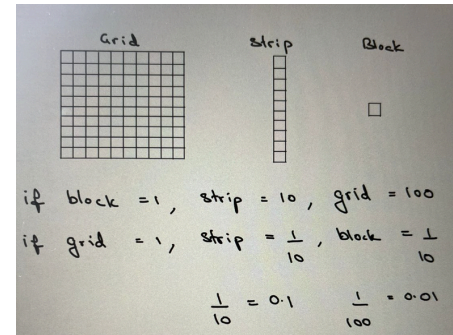 Grid strip Block
if block = 1, strip = 10, grid = 100
if grid = 1, strip = 1/10, block = 1/10
1/10 = 0.1 1/100 = 0.01